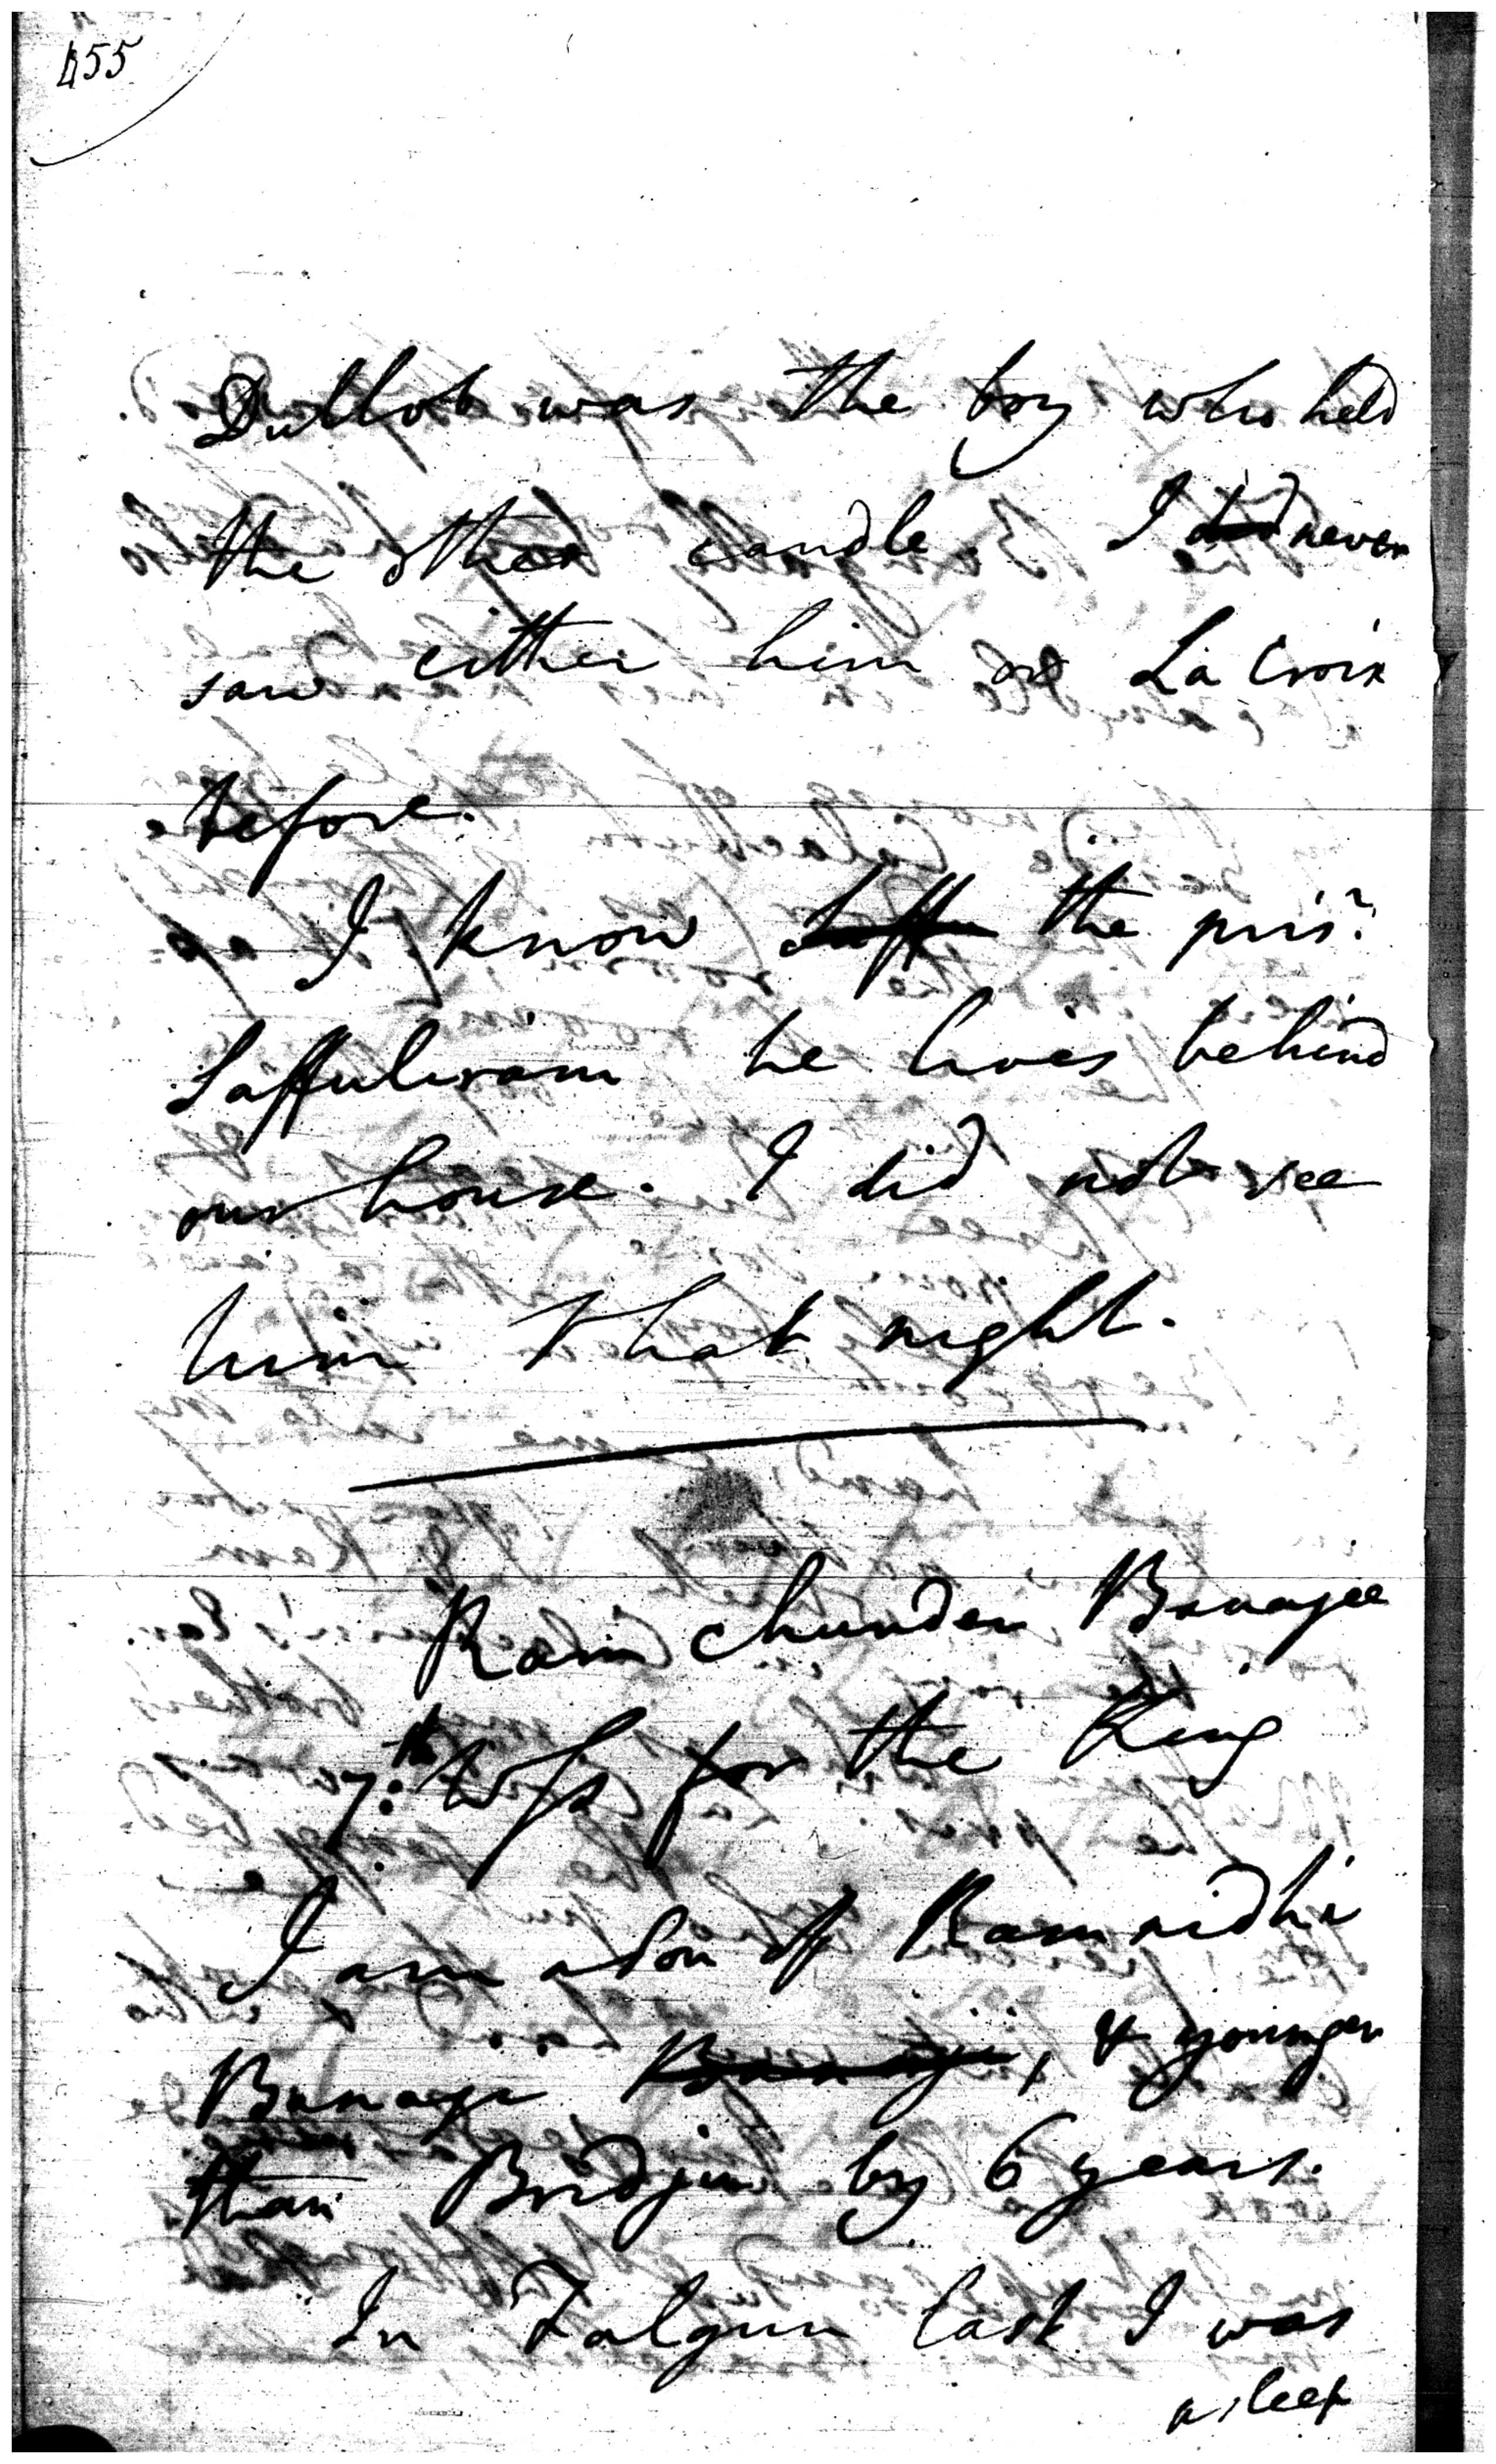 455
Dullob was the boy who held
the other candle. I did never
saw either him or La Croix
before.
I know Saffu the prisr.
Saffuliram he lives behind
our house. I did not see
him that night.
Ram Chunder Banagee
7.th Wss for the King
I am a Son of Ramnidhi
Banagee Banagee, & younger
than Bridjiu by 6 years.
In Falgun last I was
asleep